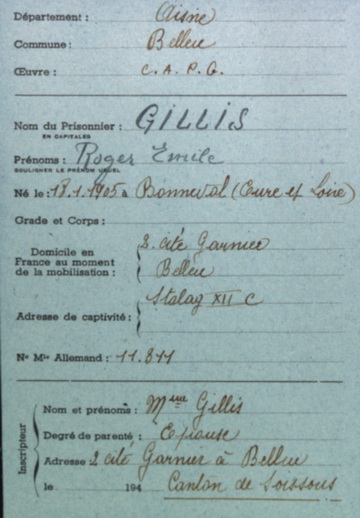 Département : Aisne
Commune : Belleu
Œuvre : C. A. P. G.
Nom du Prisonnier : GILLIS
EN CAPITALES
Prénoms : Roger Emile
SOULIGNER LE PRÉNOM USUEL
Né le : 18.1.1905 à Bonneval (Eure et Loire)
Grade et Corps :
Domicile en France au moment de la mobilisation : 2. cité Garnier
Belleu
Adresse de captivité : Stalag XII C
No Mle Allemand : 11.811
Inscripteur
Nom et prénoms : Mme Gillis
Degré de parenté : Epouse
Adresse 2 cité Garnier à Belleu
le 194 Canton de Soissons